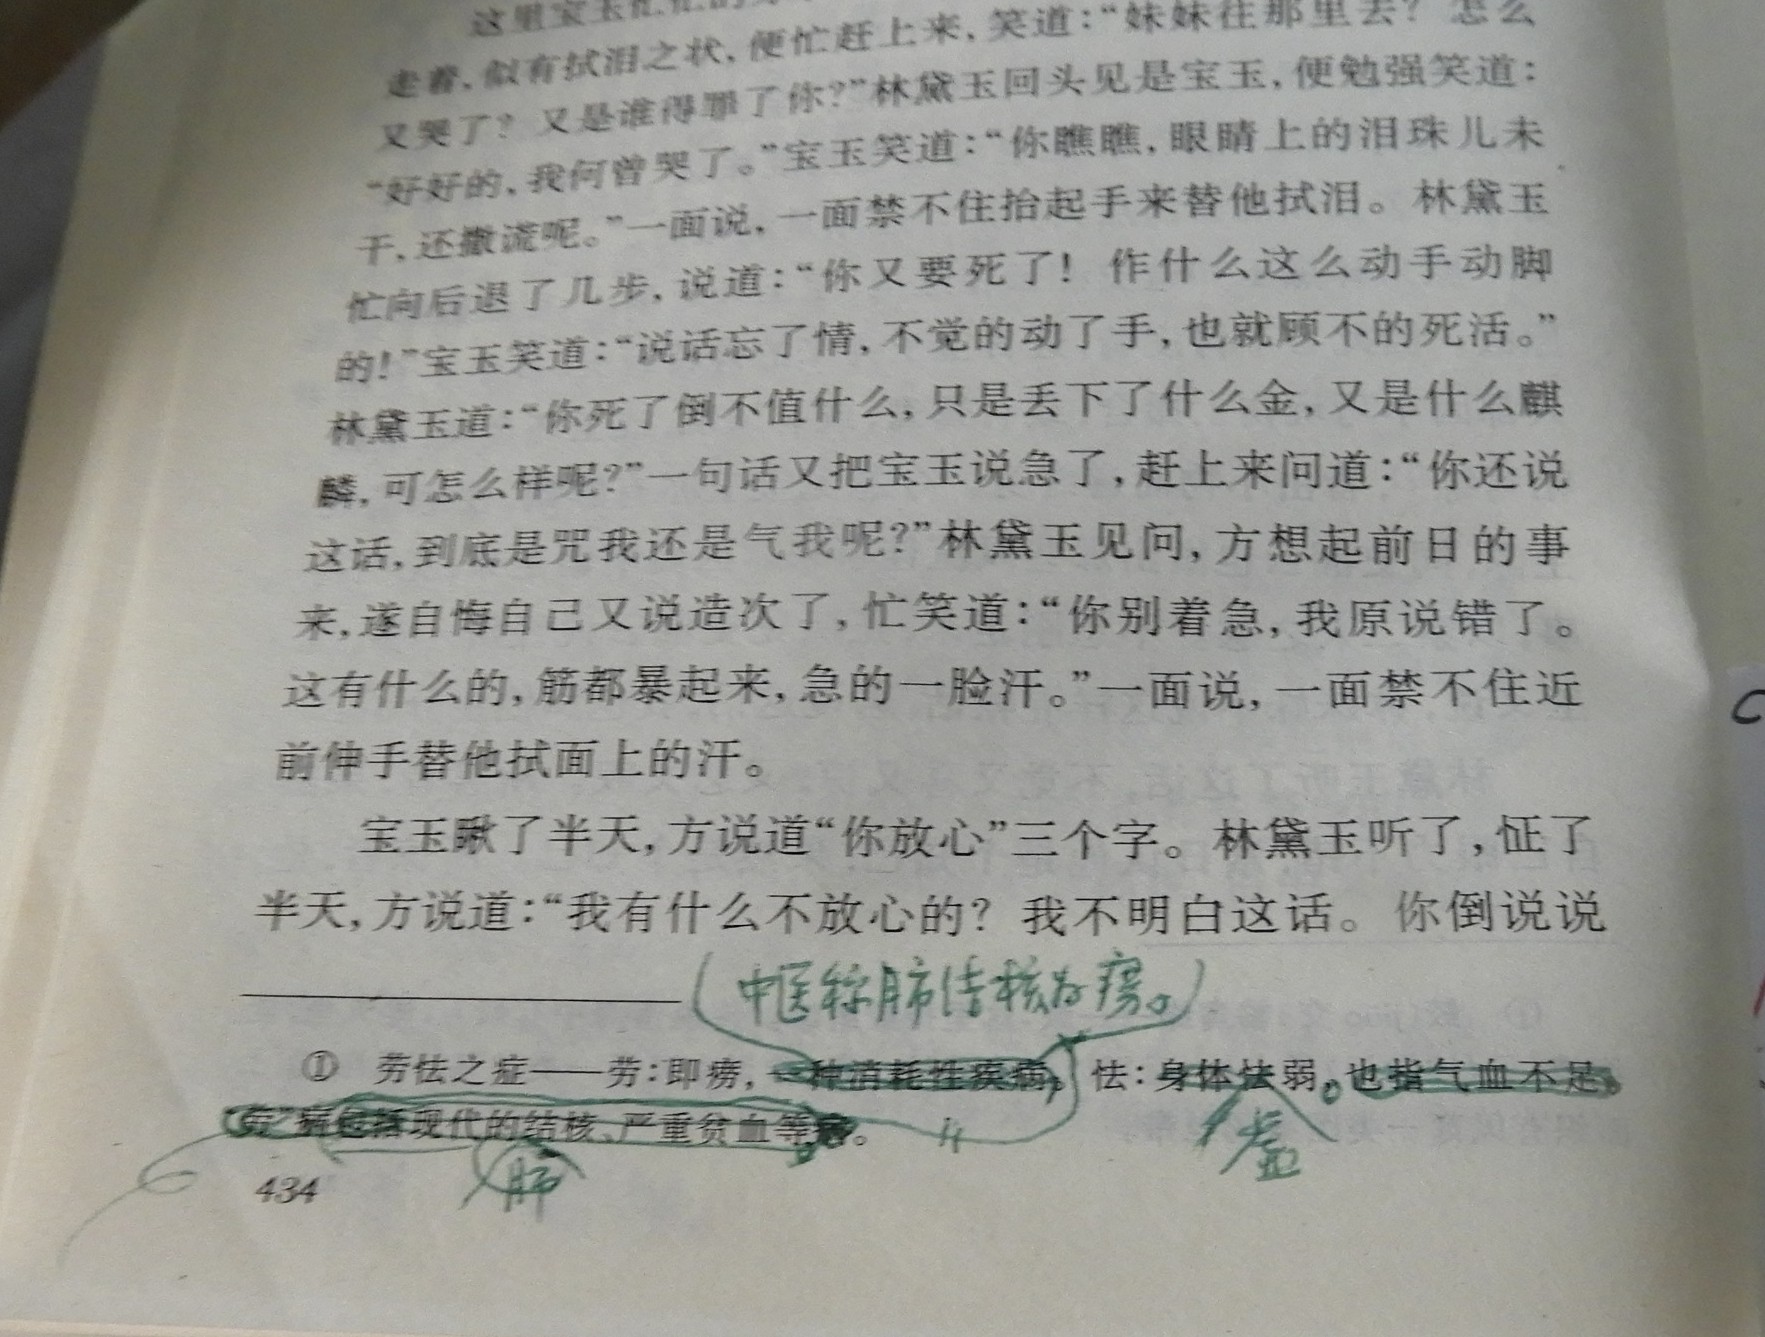 这里宝玉忙忙的
走着，似有拭泪之状，便忙赶上来，笑道：“妹妹往那里去？怎么
又哭了？又是谁得罪了你？”林黛玉回头见是宝玉，便勉强笑道：
“好好的，我何曾哭了。”宝玉笑道：“你瞧瞧，眼睛上的泪珠儿未
干，还撒谎呢。”一面说，一面禁不住抬起手来替他拭泪。林黛玉
忙向后退了几步，说道：“你又要死了！作什么这么动手动脚
的！”宝玉笑道：“说话忘了情，不觉的动了手，也就顾不的死活。”
林黛玉道：“你死了倒不值什么，只是丢下了什么金，又是什么麒
麟，可怎么样呢？”一句话又把宝玉说急了，赶上来问道：“你还说
这话，到底是咒我还是气我呢？”林黛玉见问，方想起前日的事
来，遂自悔自己又说造次了，忙笑道：“你别着急，我原说错了。
这有什么的，筋都暴起来，急的一脸汗。”一面说，一面禁不住近
前伸手替他拭面上的汗。
宝玉瞅了半天，方说道“你放心”三个字。林黛玉听了，怔了
半天，方说道：“我有什么不放心的？我不明白这话。你倒说说
中医称肺结核为痨。
① 劳怯之症——劳：即痨，一种消耗性疾病，怯：身体怯弱。也指气血不足。
“劳”病包括现代的结核、严重贫血等。
虚
肺
434